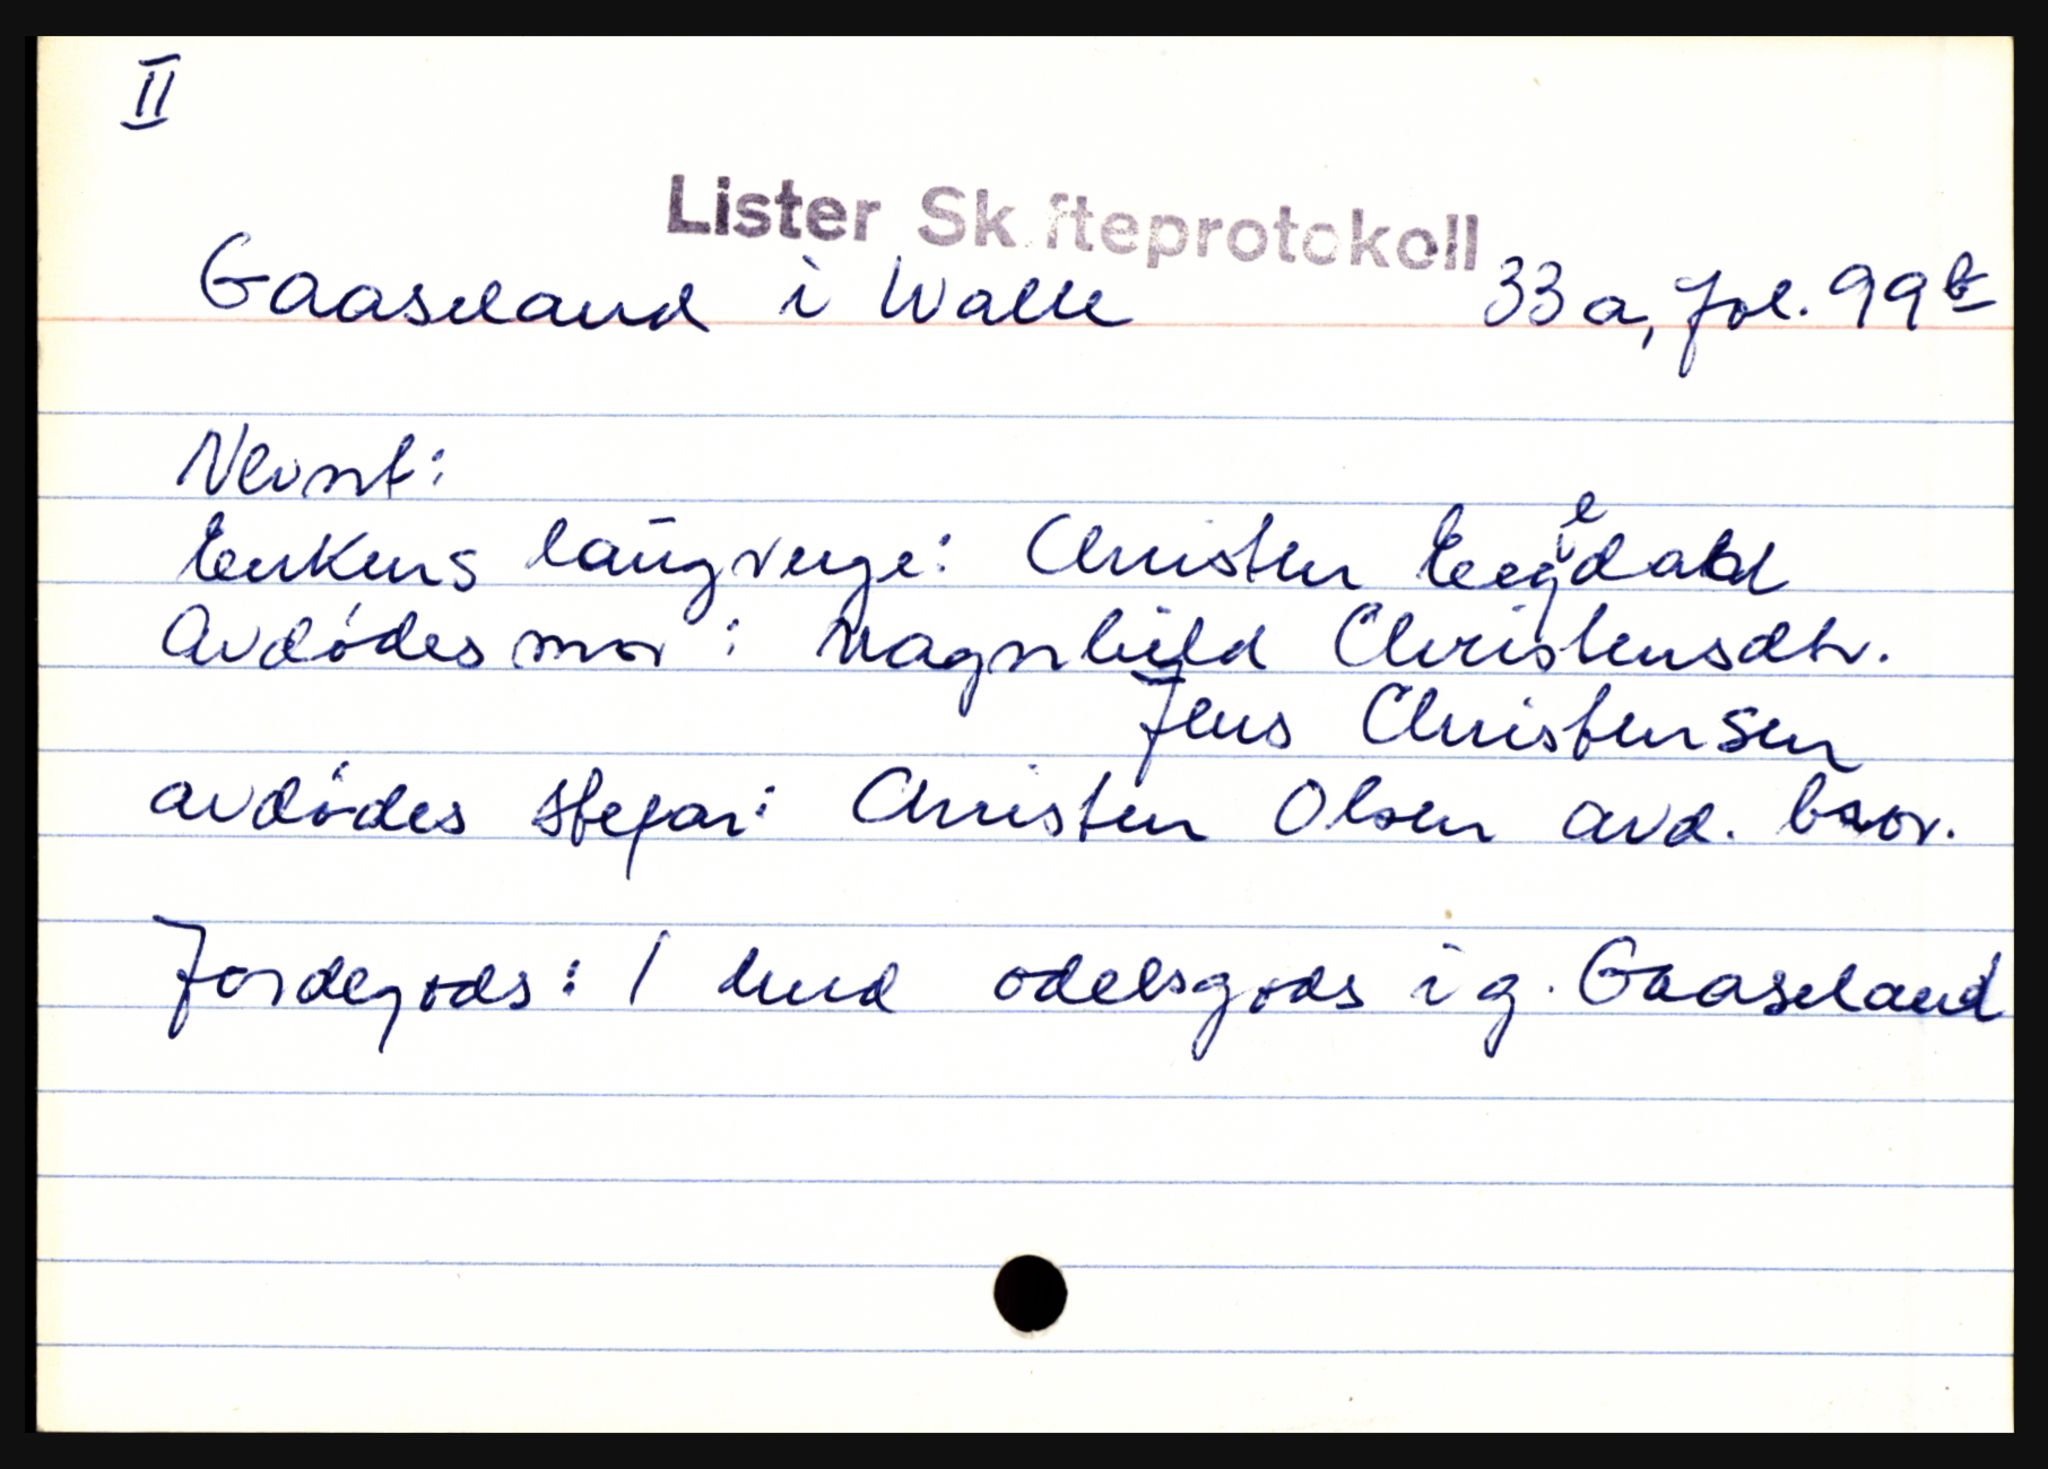 II
Lister Skifteprotokoll
Gaaseland i Walle 33a, fol. 99b
Nevnt:
Enkens laugverge: Christen Eegedahl
Avdødes mor: Magnhild Christensdtr.
Jens Christensen
avdødes stefar: Christen Olsen avd. bror.
Jordegods: 1 hud odelsgods i g. Gaaseland